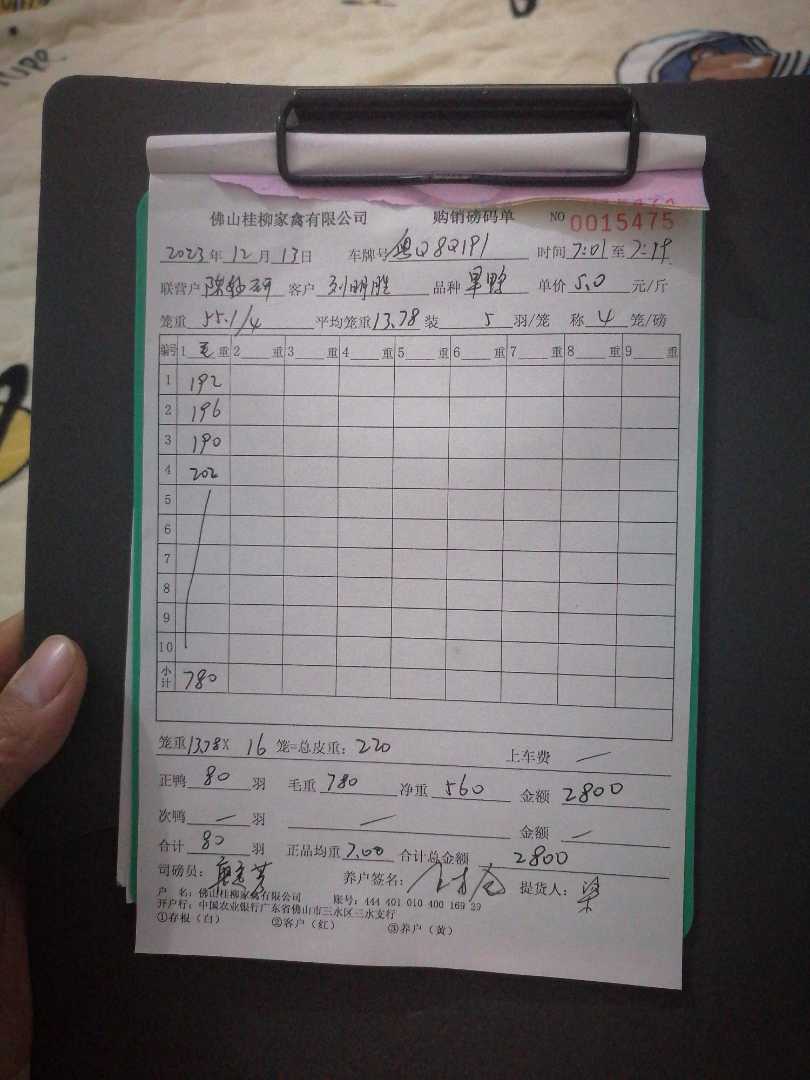 佛山桂柳家禽有限公司 购销磅码单 NO 0015475
2023年12月13日 车牌号 粤Q8Q191 时间 7:01 至 7:19
联营户 客户 刘明胜 品种 单价 5.0 元/斤
笼重 55.1/4 平均笼重 13.78 装 5 羽/笼 称 4 笼/磅
编号 1 毛 重 2 重 3 重 4 重 5 重 6 重 7 重 8 重 9 重
1 192
2 196
3 190
4 202
5
6
7
8
9
10
小计 780
笼重 13.78 X 16 笼=总皮重: 220 上车费 —
正鸭 80 羽 毛重 780 净重 560 金额 2800
次鸭 — 羽 — 金额 —
合计 80 羽 正品均重 7.00 合计总金额 2800
司磅员: 养户签名: 提货人: 梁
户 名: 佛山桂柳家禽有限公司 账号: 444 401 010 400 169 29
开户行: 中国农业银行广东省佛山市三水区三水支行
①存根（白） ②客户（红） ③养户（黄）